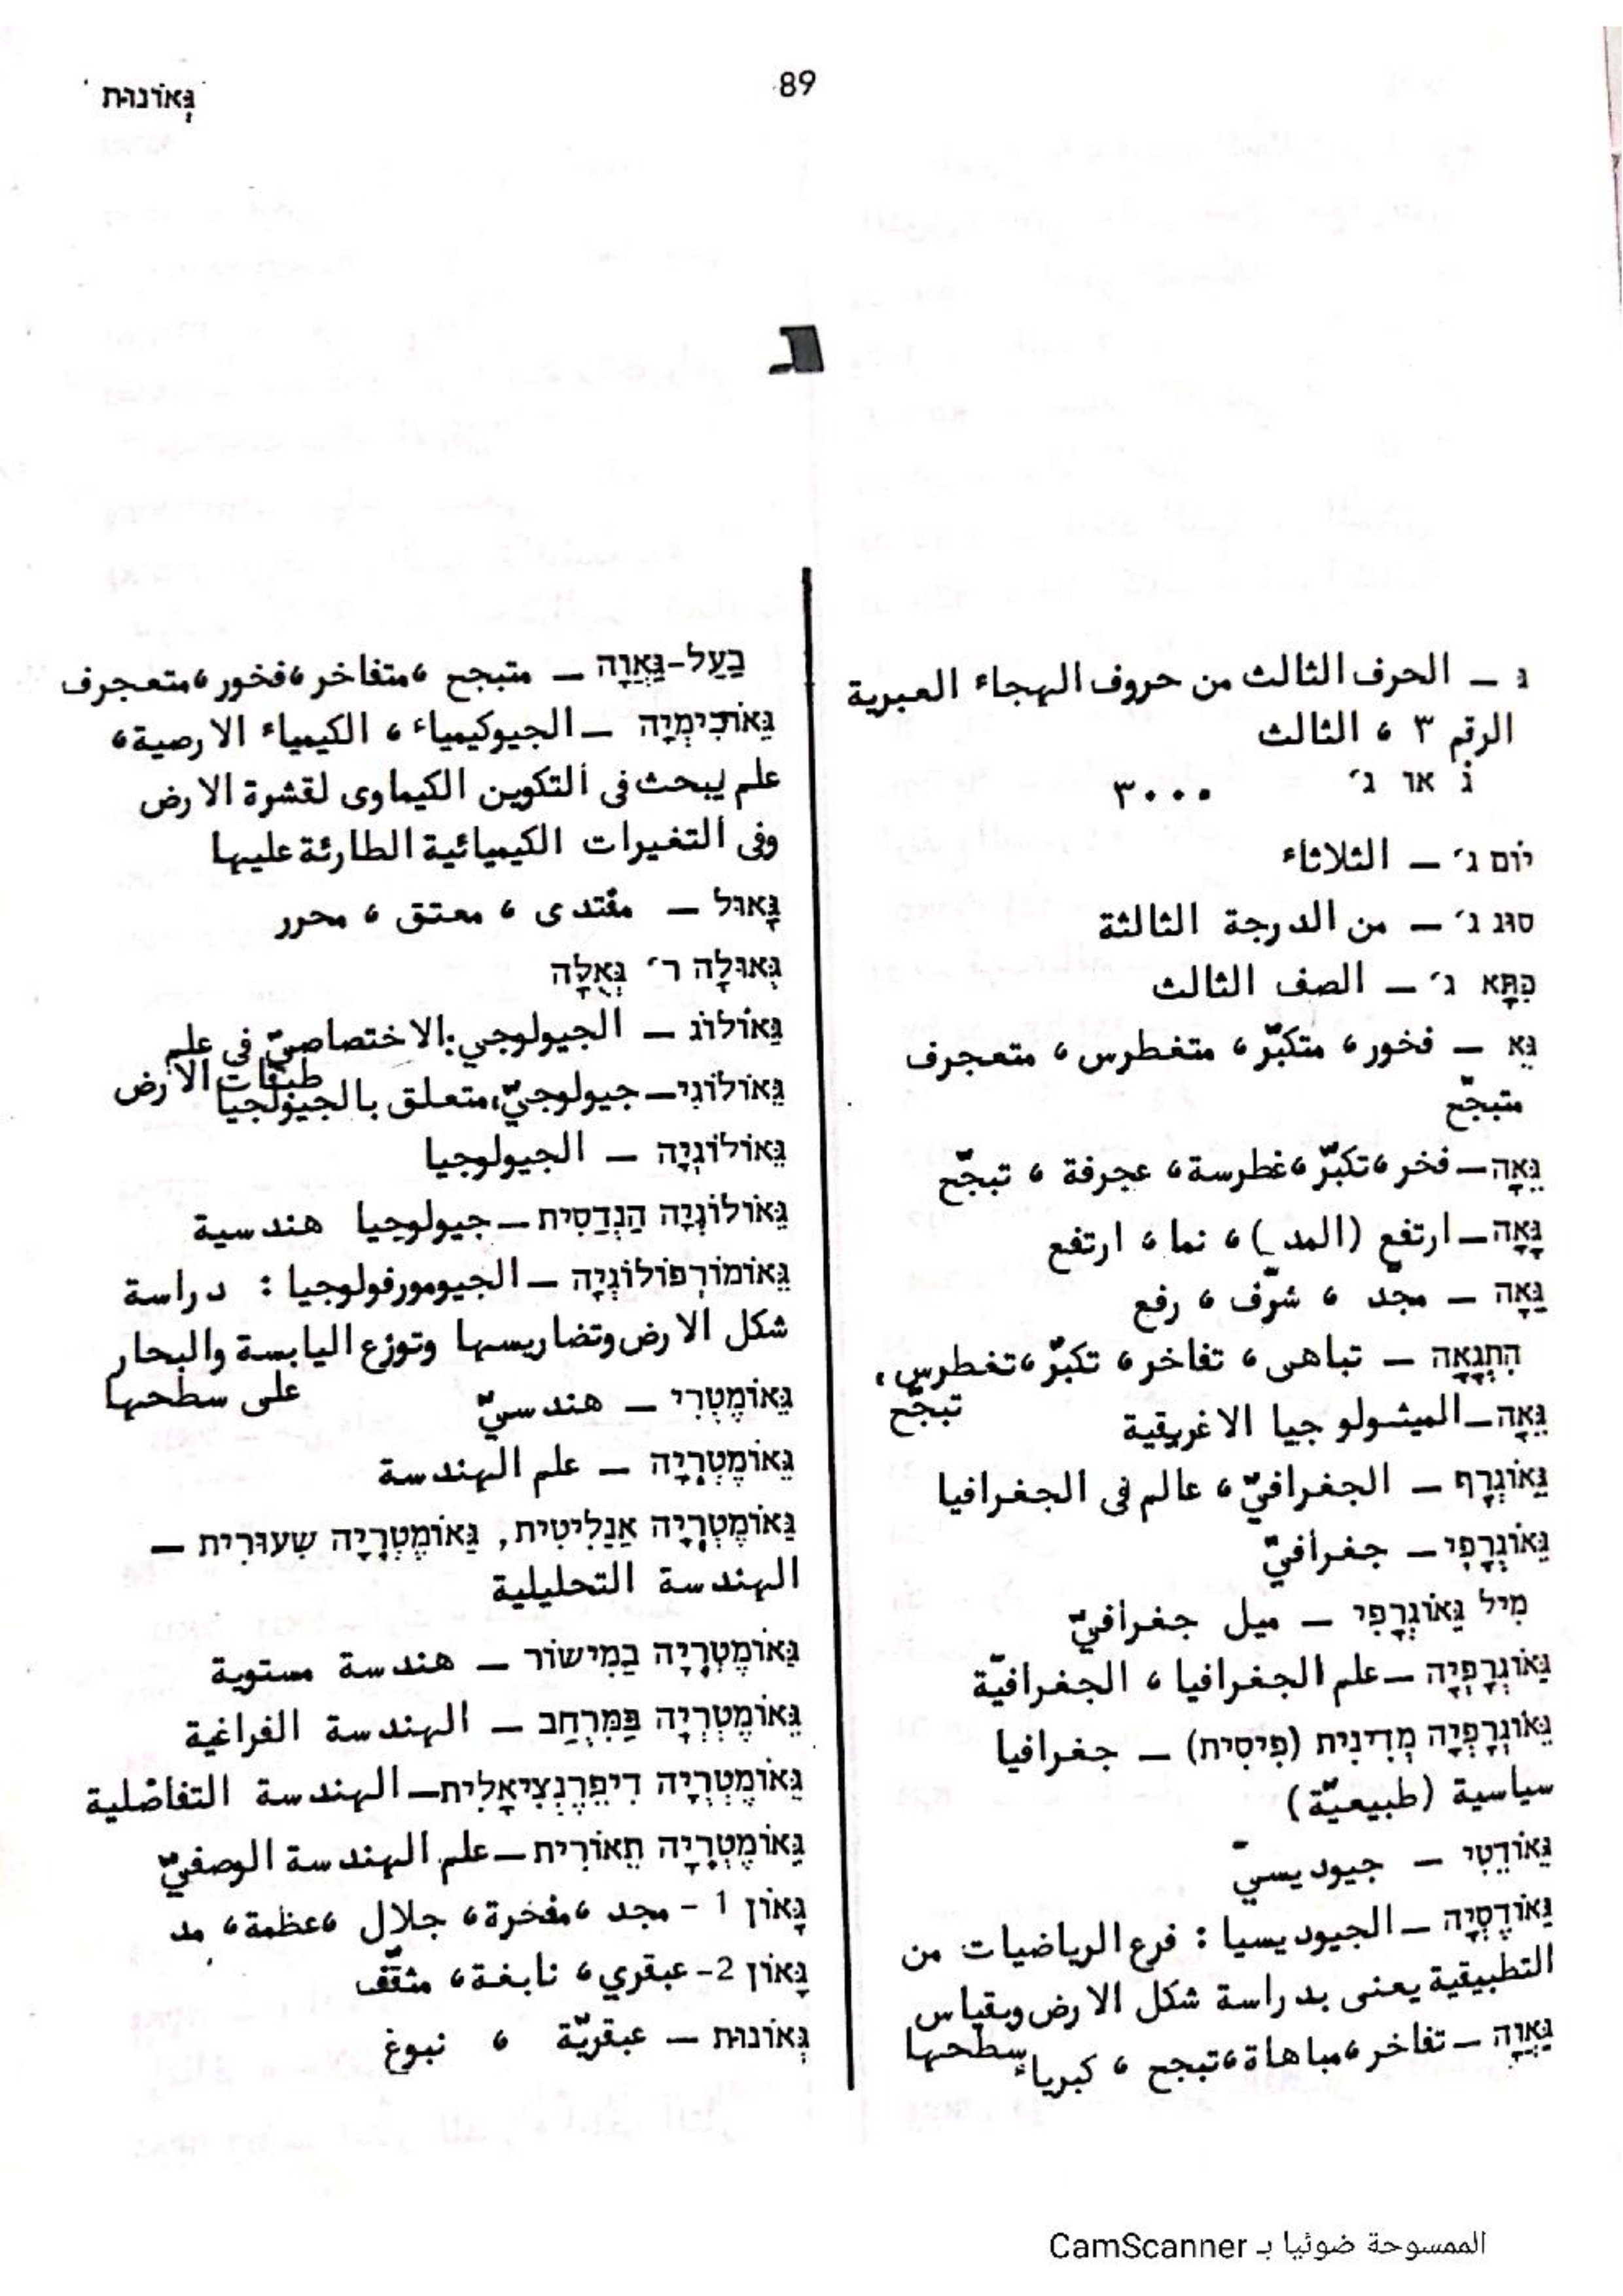 גְּאוֹנוּת
89
ג
ג – الحرف الثالث من حروف الهجاء العبرية
الرقم ٣ ، الثالث
גׄ או ג׳ ٣٠٠٠
יוֹם ג׳ – الثلاثاء
סוּג ג׳ – من الدرجة الثالثة
כִּתָּא ג׳ – الصف الثالث
גֵּא – فخور، متكبّر، متغطرس، متعجرف
متبجّح
גֵּאָה – فخر، تكبّر، غطرسة، عجرفة ، تبجّح
גָּאָה – ارتفع (المد)، نما، ارتفع
גֵּאָה – مجّد ، شرّف ، رفع
הִתְגָּאָה – تباهى، تفاخر، تكبّر، تغطرس،
تبجّح
גֵּאָה – الميثولوجيا الاغريقية
גֵּאוֹגְרָף – الجغرافيّ، عالم فى الجغرافيا
גֵּאוֹגְרָפִי – جغرافيّ
מִיל גֵּאוֹגְרָפִי – ميل جغرافيّ
גֵּאוֹגְרָפְיָה – علم الجغرافيا ، الجغرافيّة
גֵּאוֹגְרָפְיָה מְדִינִית (פִיסִית) – جغرافيا
سياسية (طبيعيّة)
גֵּאוֹדֶטִי – جيوديسيّ
גֵּאוֹדֶסְיָה – الجيوديسيا : فرع الرياضيات من
التطبيقية يعنى بدراسة شكل الارض وبقياس
سطحها
גַּאֲוָה – تفاخر، مباهاة، تبجح ، كبرياء
בַּעַל-גַּאֲוָה – متبجح ،متفاخر ،فخور ،متعجرف
גֵּאוֹכִימְיָה – الجيوكيمياء ، الكيمياء الارضية،
علم يبحث فى التكوين الكيماوى لقشرة الارض
وفى التغيرات الكيميائية الطارئة عليها
גָּאוּל – مفتدى ، معتق ، محرر
גְּאוּלָּה ר׳ גְּאֻלָּה
גֵּאוֹלוֹג – الجيولوجي: الاختصاصيّ في علم
طبقات الأرض
גֵּאוֹלוֹגִי – جيولوجيّ، متعلق بالجيولجيا
גֵּאוֹלוֹגְיָה – الجيولوجيا
גֵּאוֹלוֹגְיָה הַנְדַּסִית – جيولوجيا هندسية
גֵּאוֹמוֹרְפוֹלוֹגְיָה – الجيومورفولوجيا : دراسة
شكل الارض وتضاريسها وتوزع اليابسة والبحار
على سطحها
גֵּאוֹמֶטְרִי – هندسيّ
גֵּאוֹמֶטְרִיָה – علم الهندسة
גֵּאוֹמֶטְרִיָה אֲנַלִיטִית, גֵּאוֹמֶטְרִיָה שִׁעוּרִית –
الهندسة التحليلية
גֵּאוֹמֶטְרִיָה בַּמִּישׁוֹר – هندسة مستوية
גֵּאוֹמֶטְרִיָה בַּמֶּרְחַב – الهندسة الفراغية
גֵּאוֹמֶטְרִיָה דִיפֵרֶנְצִיאָלִית – الهندسة التفاضلية
גֵּאוֹמֶטְרִיָה תֵּאוֹרִית – علم الهندسة الوصفيّ
גָּאוֹן 1 - مجد ،مفخرة، جلال ،عظمة، مد
גָּאוֹן 2- عبقري، نابغة، مثقّف
גְּאוֹנוּת – عبقريّة ، نبوغ
الممسوحة ضوئيا بـ CamScanner